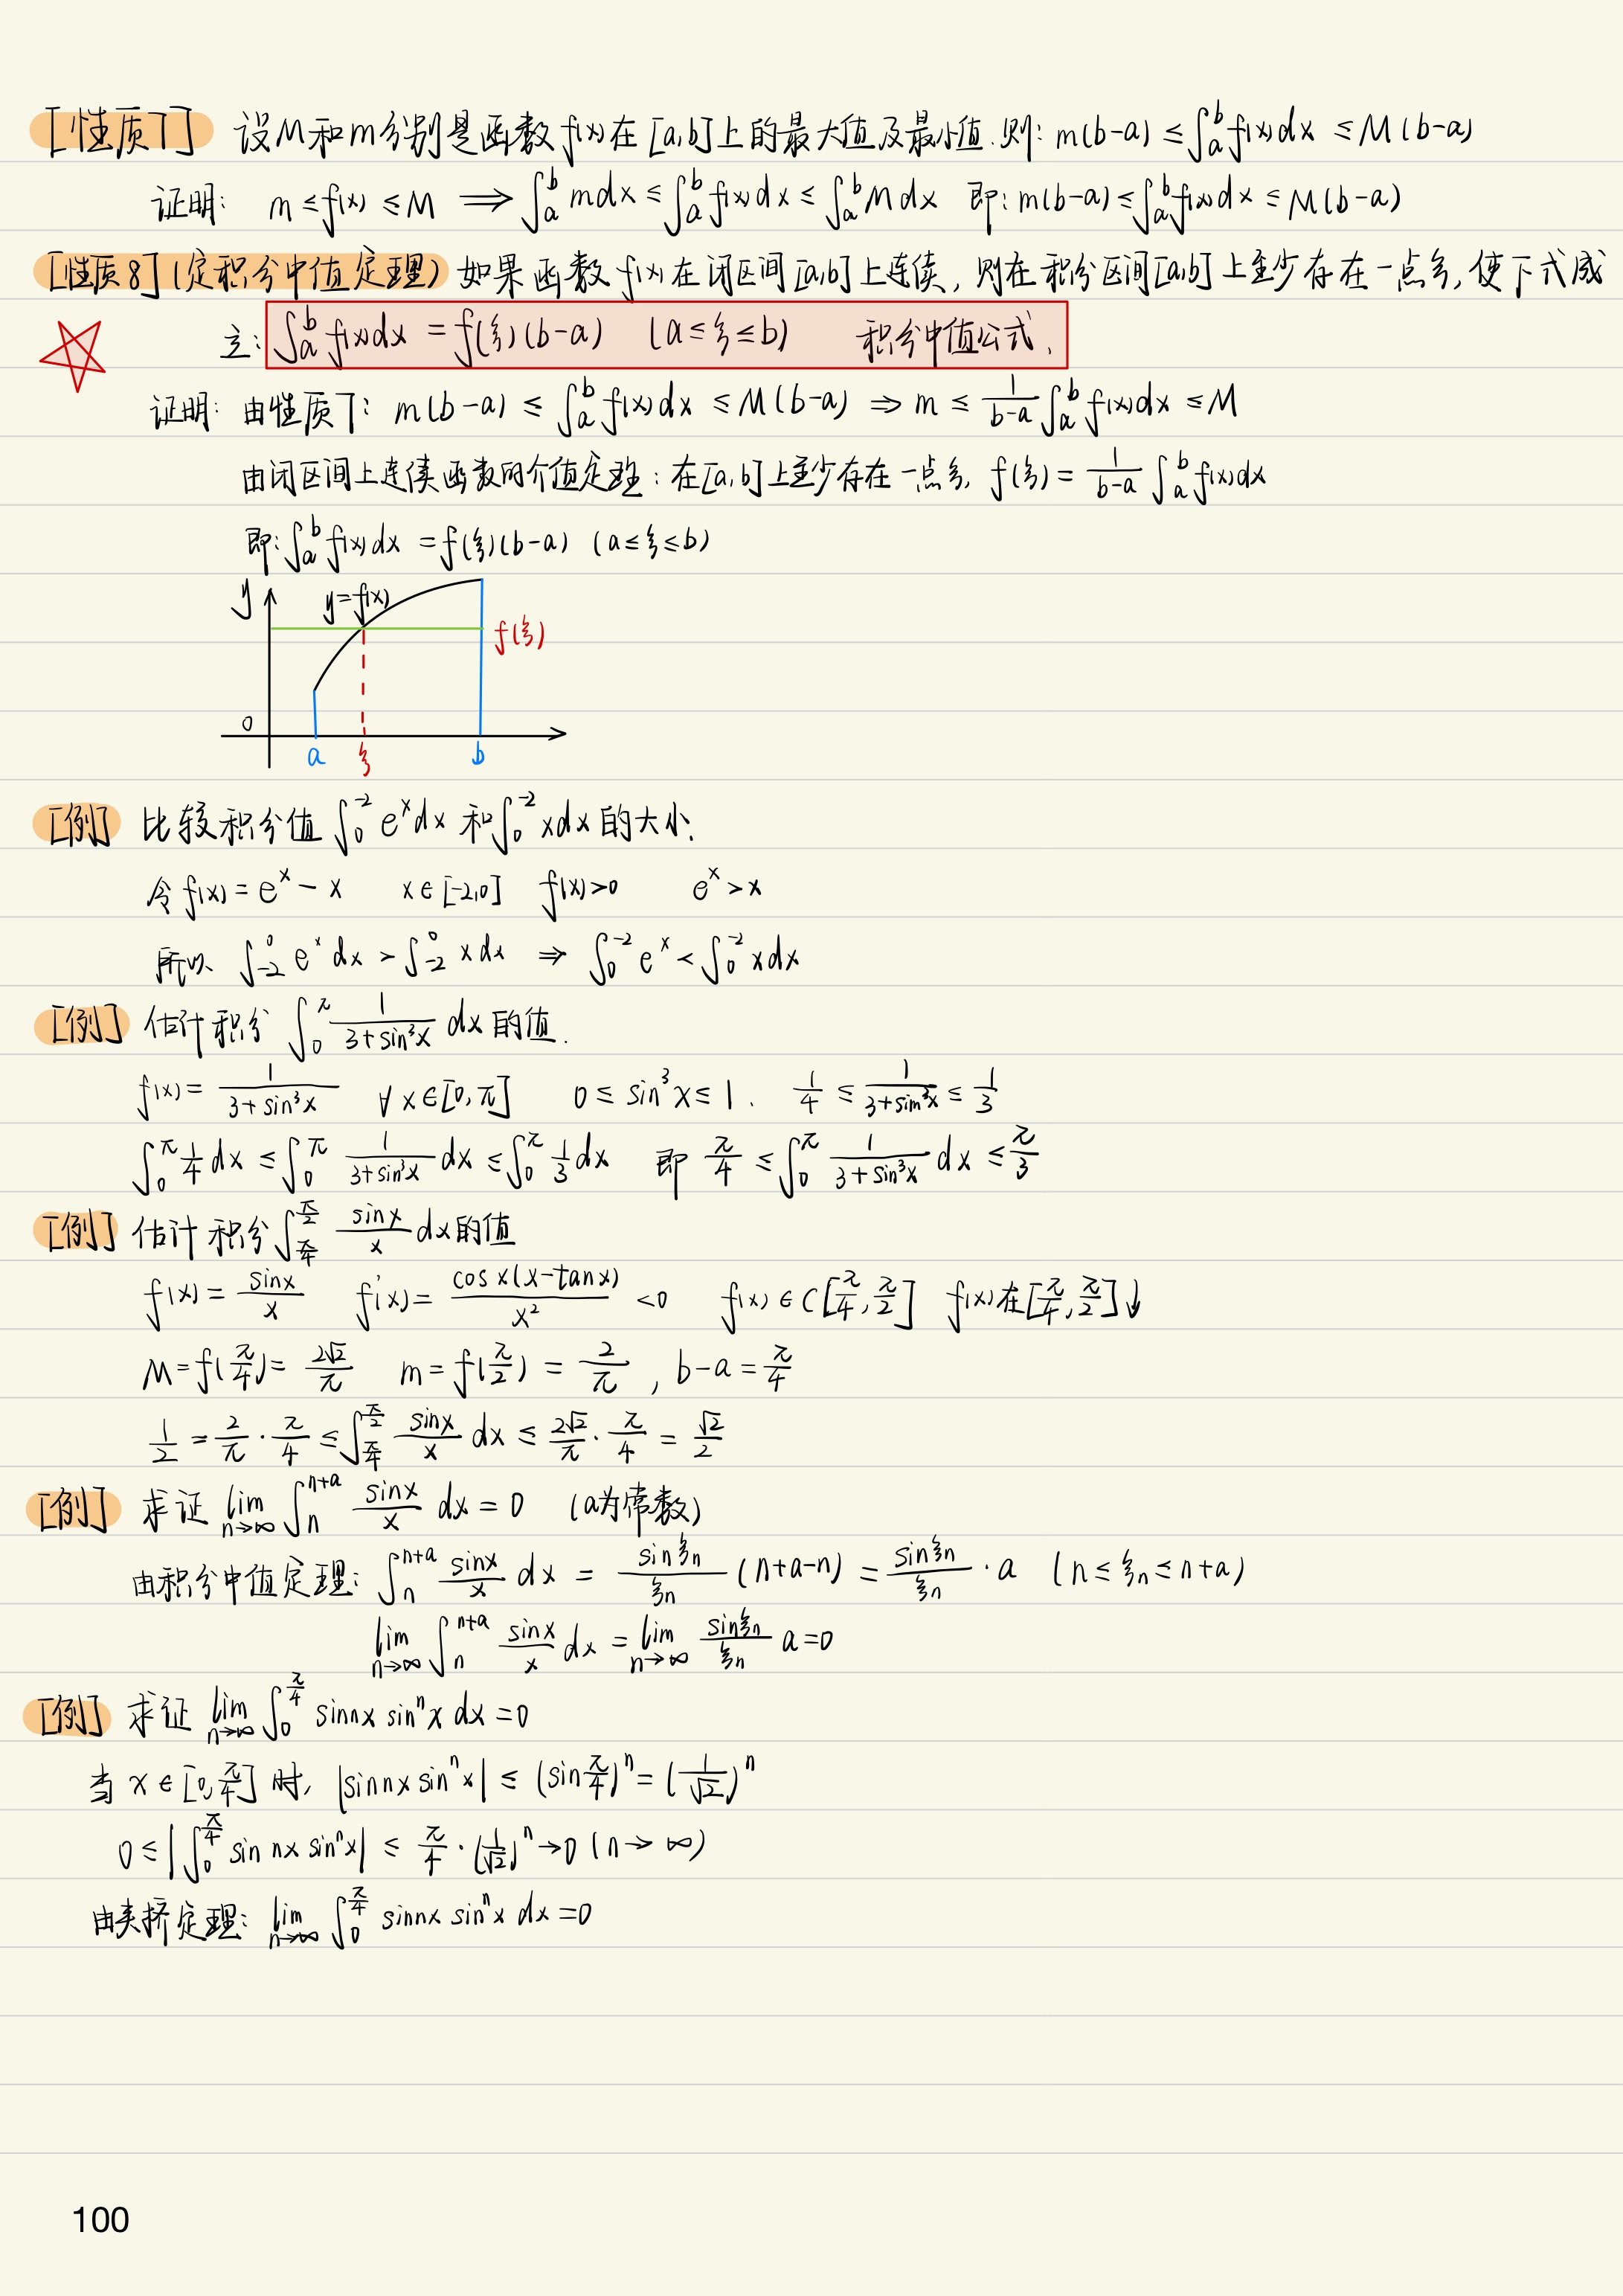 [性质7] 设M和m分别是函数f(x)在[a,b]上的最大值及最小值.则: m(b-a) ≤ ∫_a^b f(x)dx ≤ M(b-a)
证明: m ≤ f(x) ≤ M ⟹ ∫_a^b mdx ≤ ∫_a^b f(x)dx ≤ ∫_a^b Mdx 即: m(b-a) ≤ ∫_a^b f(x)dx ≤ M(b-a)
[性质8] (定积分中值定理) 如果函数f(x)在闭区间[a,b]上连续, 则在积分区间[a,b]上至少存在一点ξ, 使下式成
立: ∫_a^b f(x)dx = f(ξ)(b-a) (a≤ξ≤b) 积分中值公式.
证明: 由性质7: m(b-a) ≤ ∫_a^b f(x)dx ≤ M(b-a) ⇒ m ≤ 1/(b-a) ∫_a^b f(x)dx ≤ M
由闭区间上连续函数的介值定理: 在[a,b]上至少存在一点ξ, f(ξ) = 1/(b-a) ∫_a^b f(x)dx
即: ∫_a^b f(x)dx = f(ξ)(b-a) (a≤ξ≤b)
y y=f(x)
f(ξ)
0
a ξ b
[例] 比较积分值 ∫_0^{-2} e^x dx 和 ∫_0^{-2} xdx 的大小.
令f(x) = e^x - x x∈[-2,0] f(x)>0 e^x > x
所以 ∫_{-2}^0 e^x dx > ∫_{-2}^0 xdx ⇒ ∫_0^{-2} e^x < ∫_0^{-2} xdx
[例] 估计积分 ∫_0^π 1/(3+sin³x) dx 的值.
f(x) = 1/(3+sin³x) ∀x∈[0,π] 0 ≤ sin³x ≤ 1. 1/4 ≤ 1/(3+sin³x) ≤ 1/3
∫_0^π 1/4 dx ≤ ∫_0^π 1/(3+sin³x) dx ≤ ∫_0^π 1/3 dx 即 π/4 ≤ ∫_0^π 1/(3+sin³x) dx ≤ π/3
[例] 估计积分 ∫_{π/4}^{π/2} sinx/x dx的值
f(x) = sinx/x f'(x) = cosx(x-tanx)/x² <0 f(x)∈C[π/4, π/2] f(x)在[π/4, π/2]↓
M = f(π/4) = 2√2/π m = f(π/2) = 2/π , b-a = π/4
1/2 = 2/π · π/4 ≤ ∫_{π/4}^{π/2} sinx/x dx ≤ 2√2/π · π/4 = √2/2
[例] 求证 lim_{n→∞} ∫_n^{n+a} sinx/x dx = 0 (a为常数)
由积分中值定理: ∫_n^{n+a} sinx/x dx = sinξn/ξn (n+a-n) = sinξn/ξn · a (n≤ξn≤n+a)
lim_{n→∞} ∫_n^{n+a} sinx/x dx = lim_{n→∞} sinξn/ξn a = 0
[例] 求证 lim_{n→∞} ∫_0^{π/4} sinnx sin^n x dx = 0
当 x∈[0,π/4] 时, |sinnx sin^n x| ≤ (sin π/4)^n = (1/√2)^n
0 ≤ |∫_0^{π/4} sin nx sin^n x| ≤ π/4 · (1/√2)^n → 0 (n→∞)
由夹挤定理: lim_{n→∞} ∫_0^{π/4} sinnx sin^n x dx = 0
100